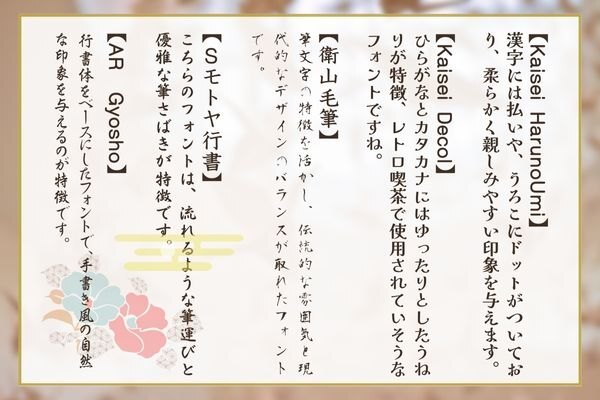 【Kaisei HarunoUmi】
漢字には払いや、うろこにドットがついてお
り、柔らかく親しみやすい印象を与えます。
【Kaisei Decol】
ひらがなとカタカナにはゆったりとしたうね
りが特徴、レトロ喫茶で使用されていそうな
フォントですね。
【衡山毛筆】
筆文字の特徴を活かし、伝統的な雰囲気と現
代的なデザインのバランスが取れたフォント
です。
【Ｓモトヤ行書】
こちらのフォントは、流れるような筆運びと
優雅な筆さばきが特徴です。
【AR Gyosho】
行書体をベースにしたフォントで、手書き風の自然
な印象を与えるのが特徴です。